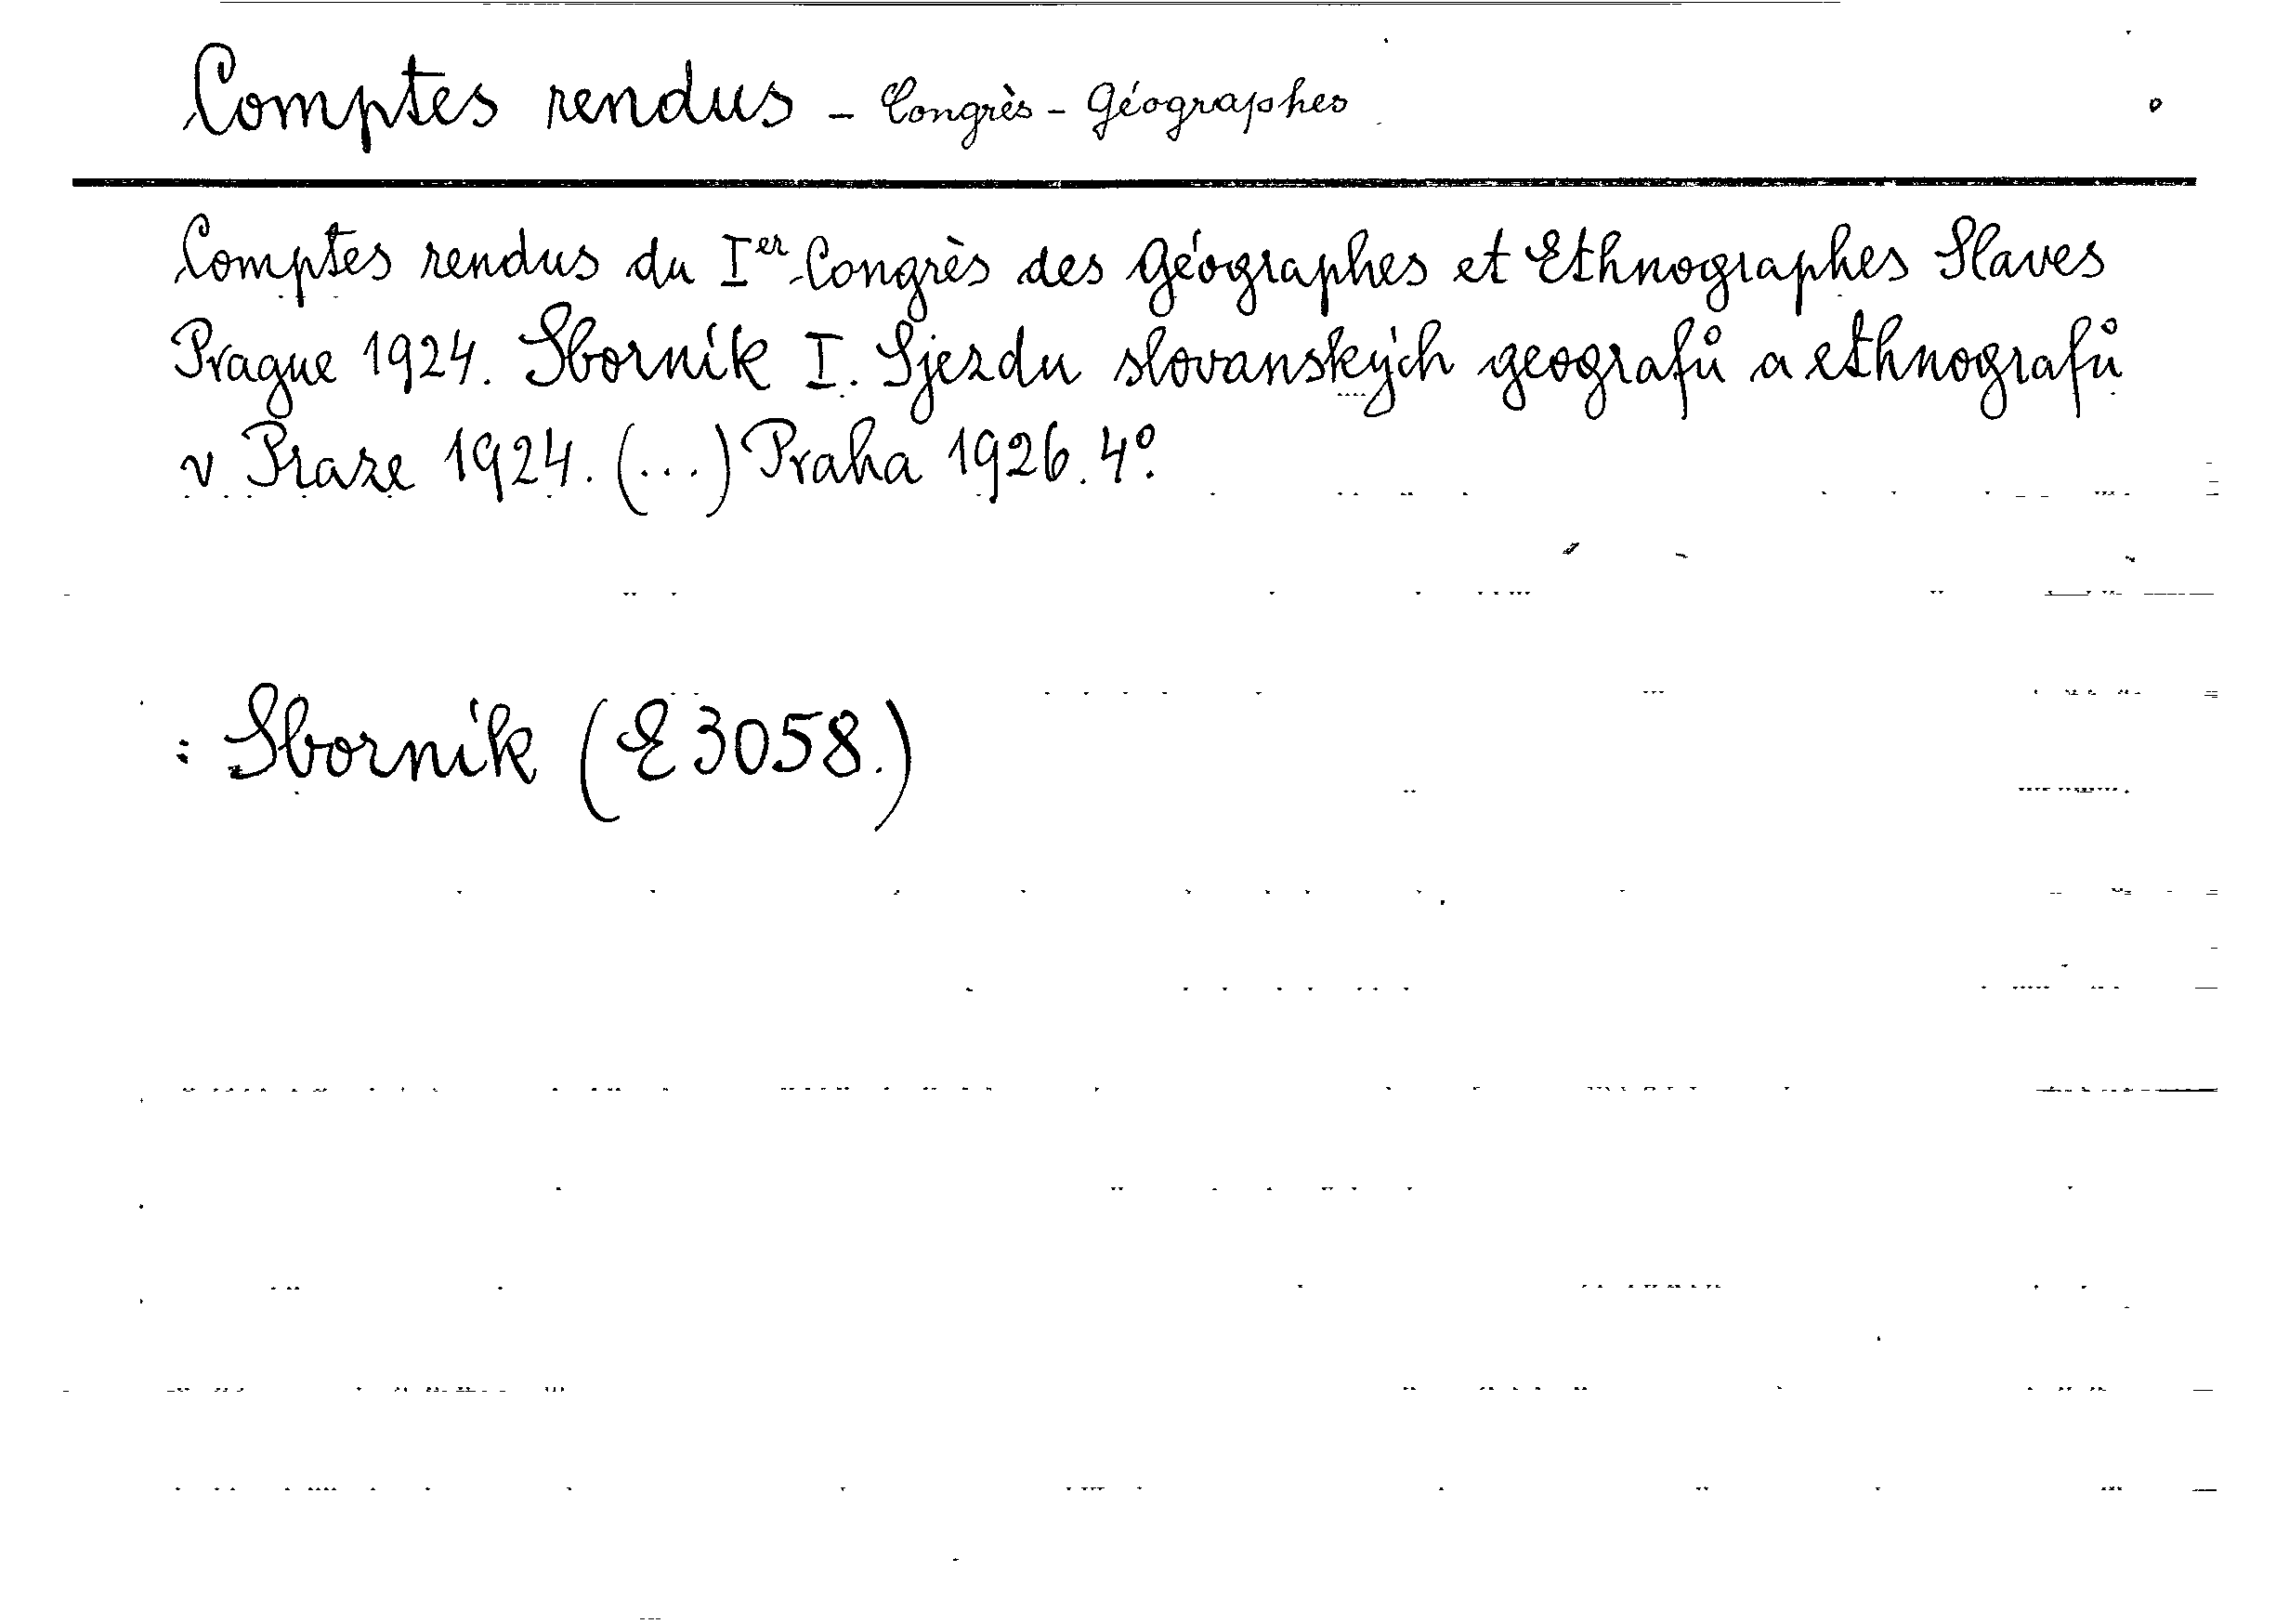 Comptes rendus - Congrès - Géographes
Comptes rendus du Ier Congrès des Géographes et Ethnographes Slaves
Prague 1924. Sborník I. Sjezdu slovanských geografů a ethnografů
v Praze 1924. (...) Praha 1926. 4°.
: Sborník (E 3058.)